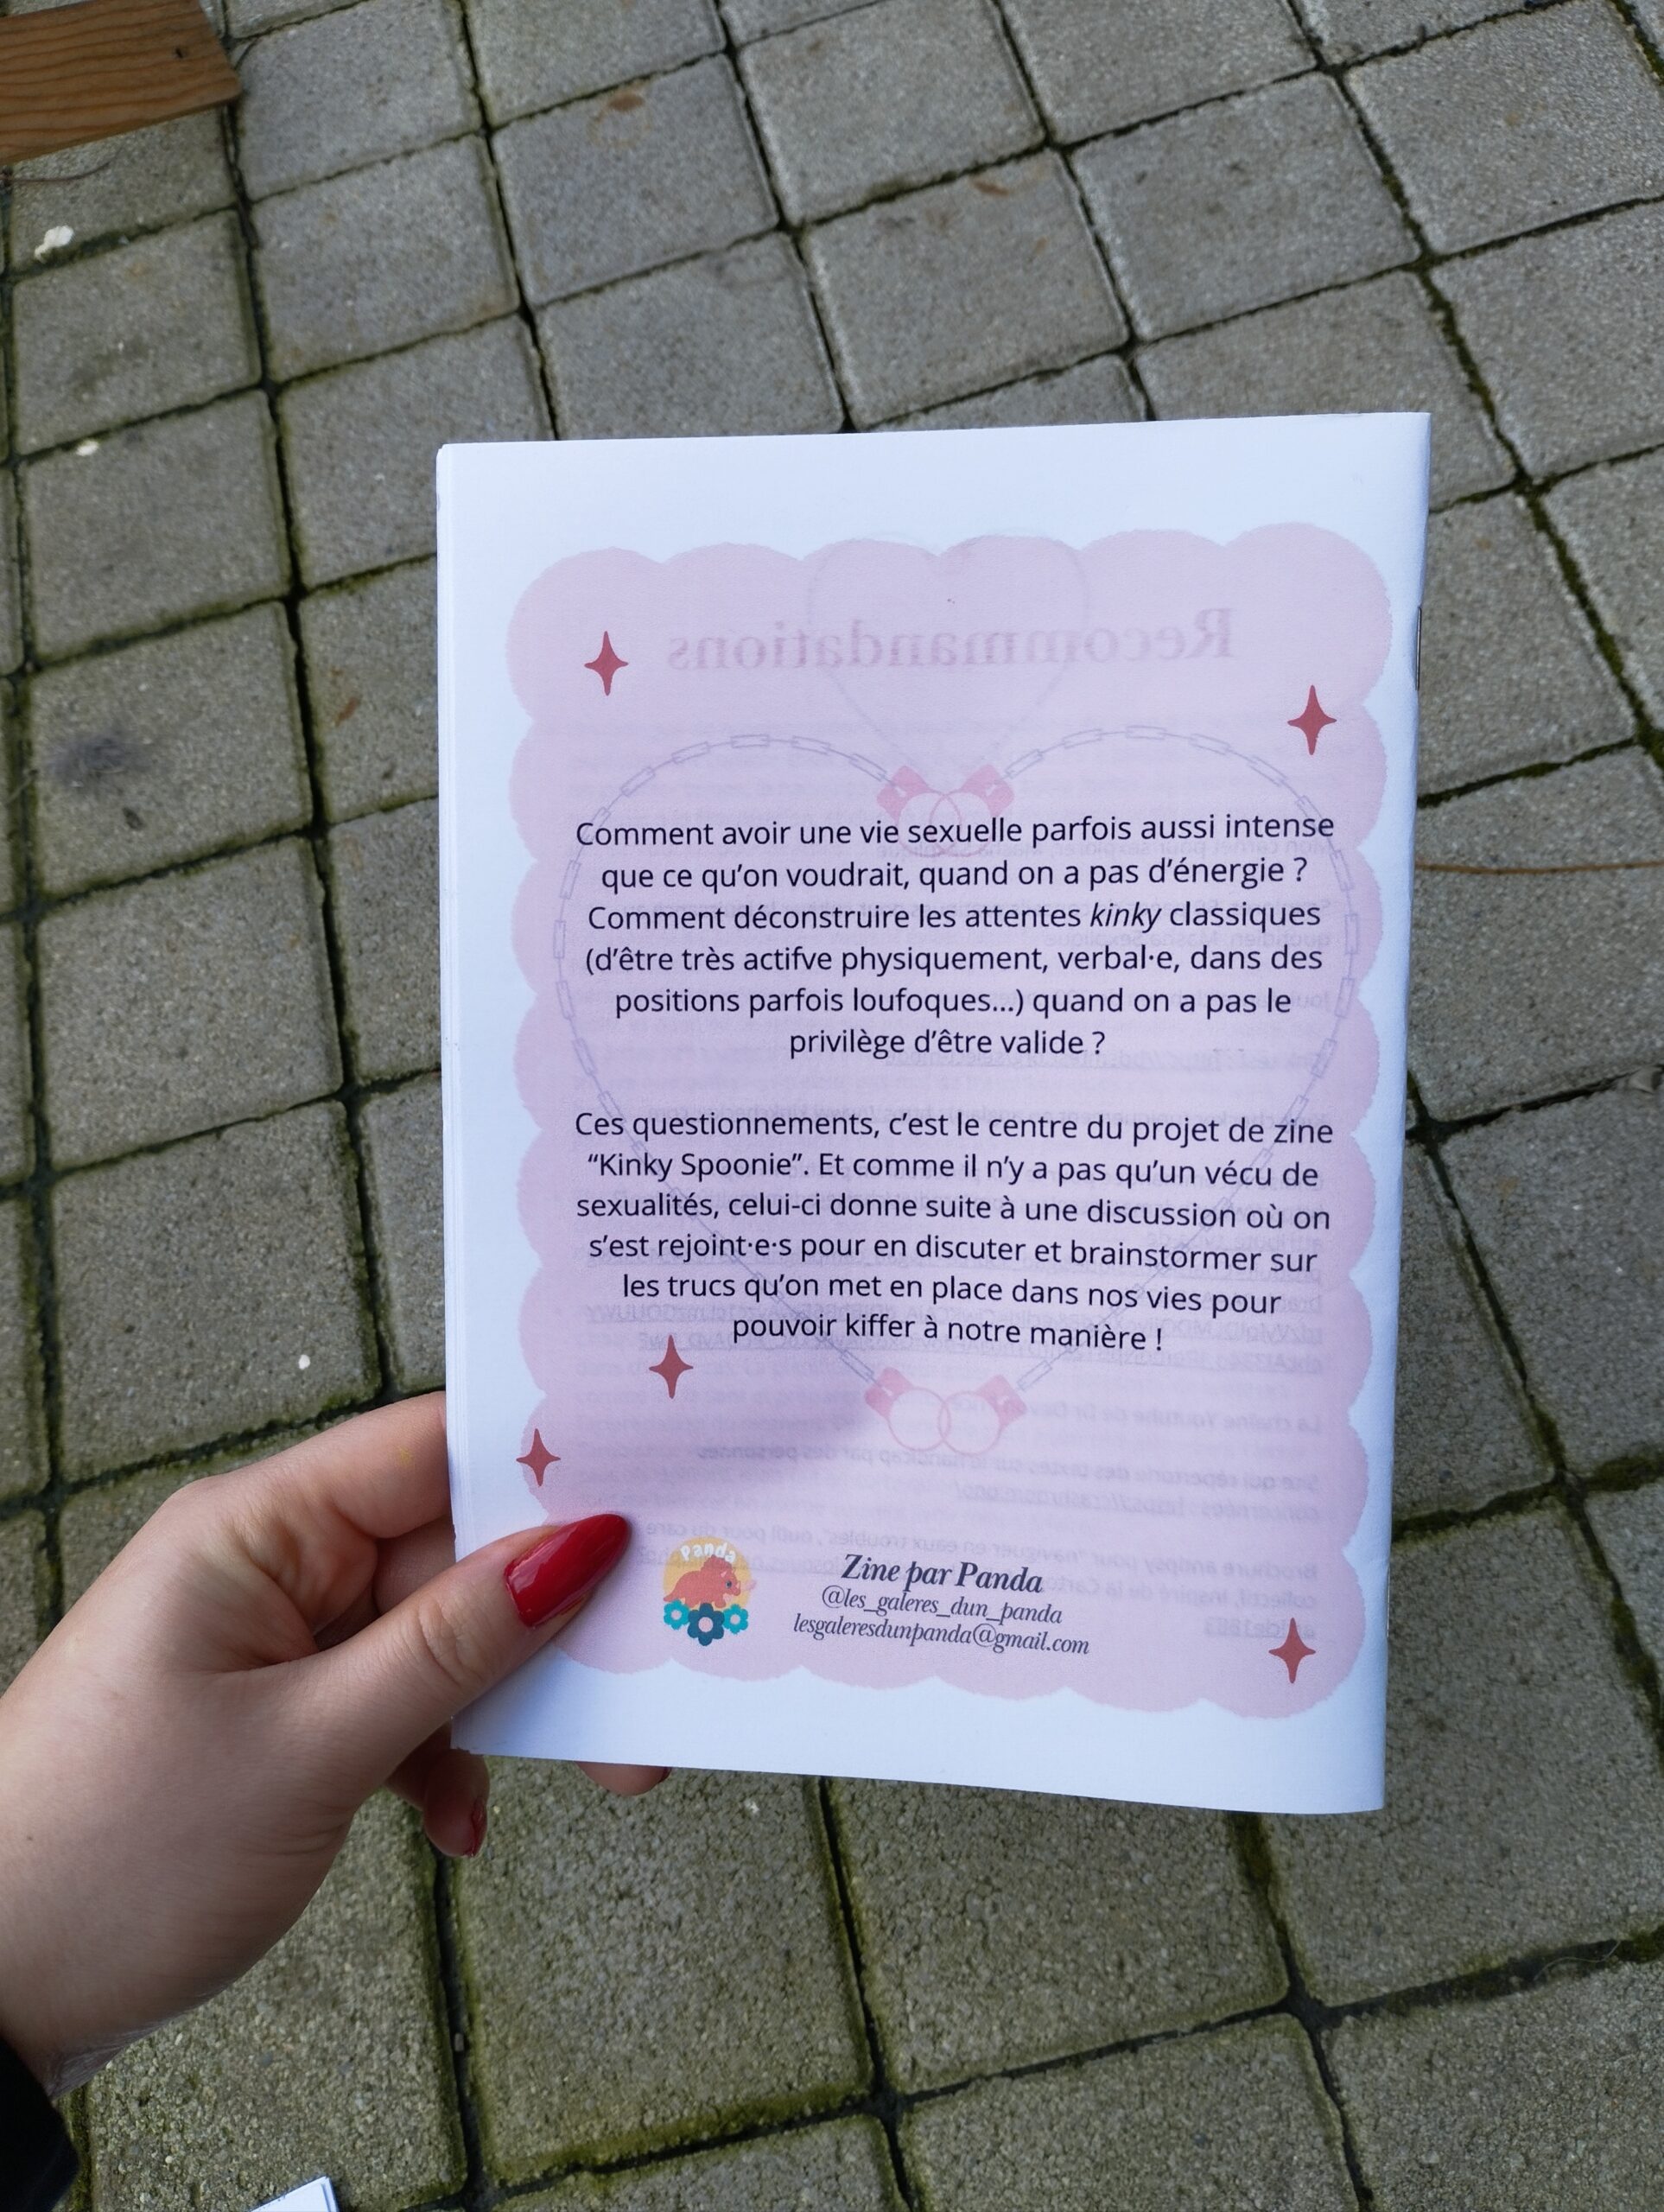 Recommandations
Comment avoir une vie sexuelle parfois aussi intense
que ce qu'on voudrait, quand on a pas d'énergie ?
Comment déconstruire les attentes kinky classiques
(d'être très actifve physiquement, verbal·e, dans des
positions parfois loufoques...) quand on a pas le
privilège d'être valide ?
Ces questionnements, c'est le centre du projet de zine
“Kinky Spoonie”. Et comme il n'y a pas qu'un vécu de
sexualités, celui-ci donne suite à une discussion où on
s'est rejoint·e·s pour en discuter et brainstormer sur
les trucs qu'on met en place dans nos vies pour
pouvoir kiffer à notre manière !
Panda
Zine par Panda
@les_galeres_dun_panda
lesgaleresdunpanda@gmail.com